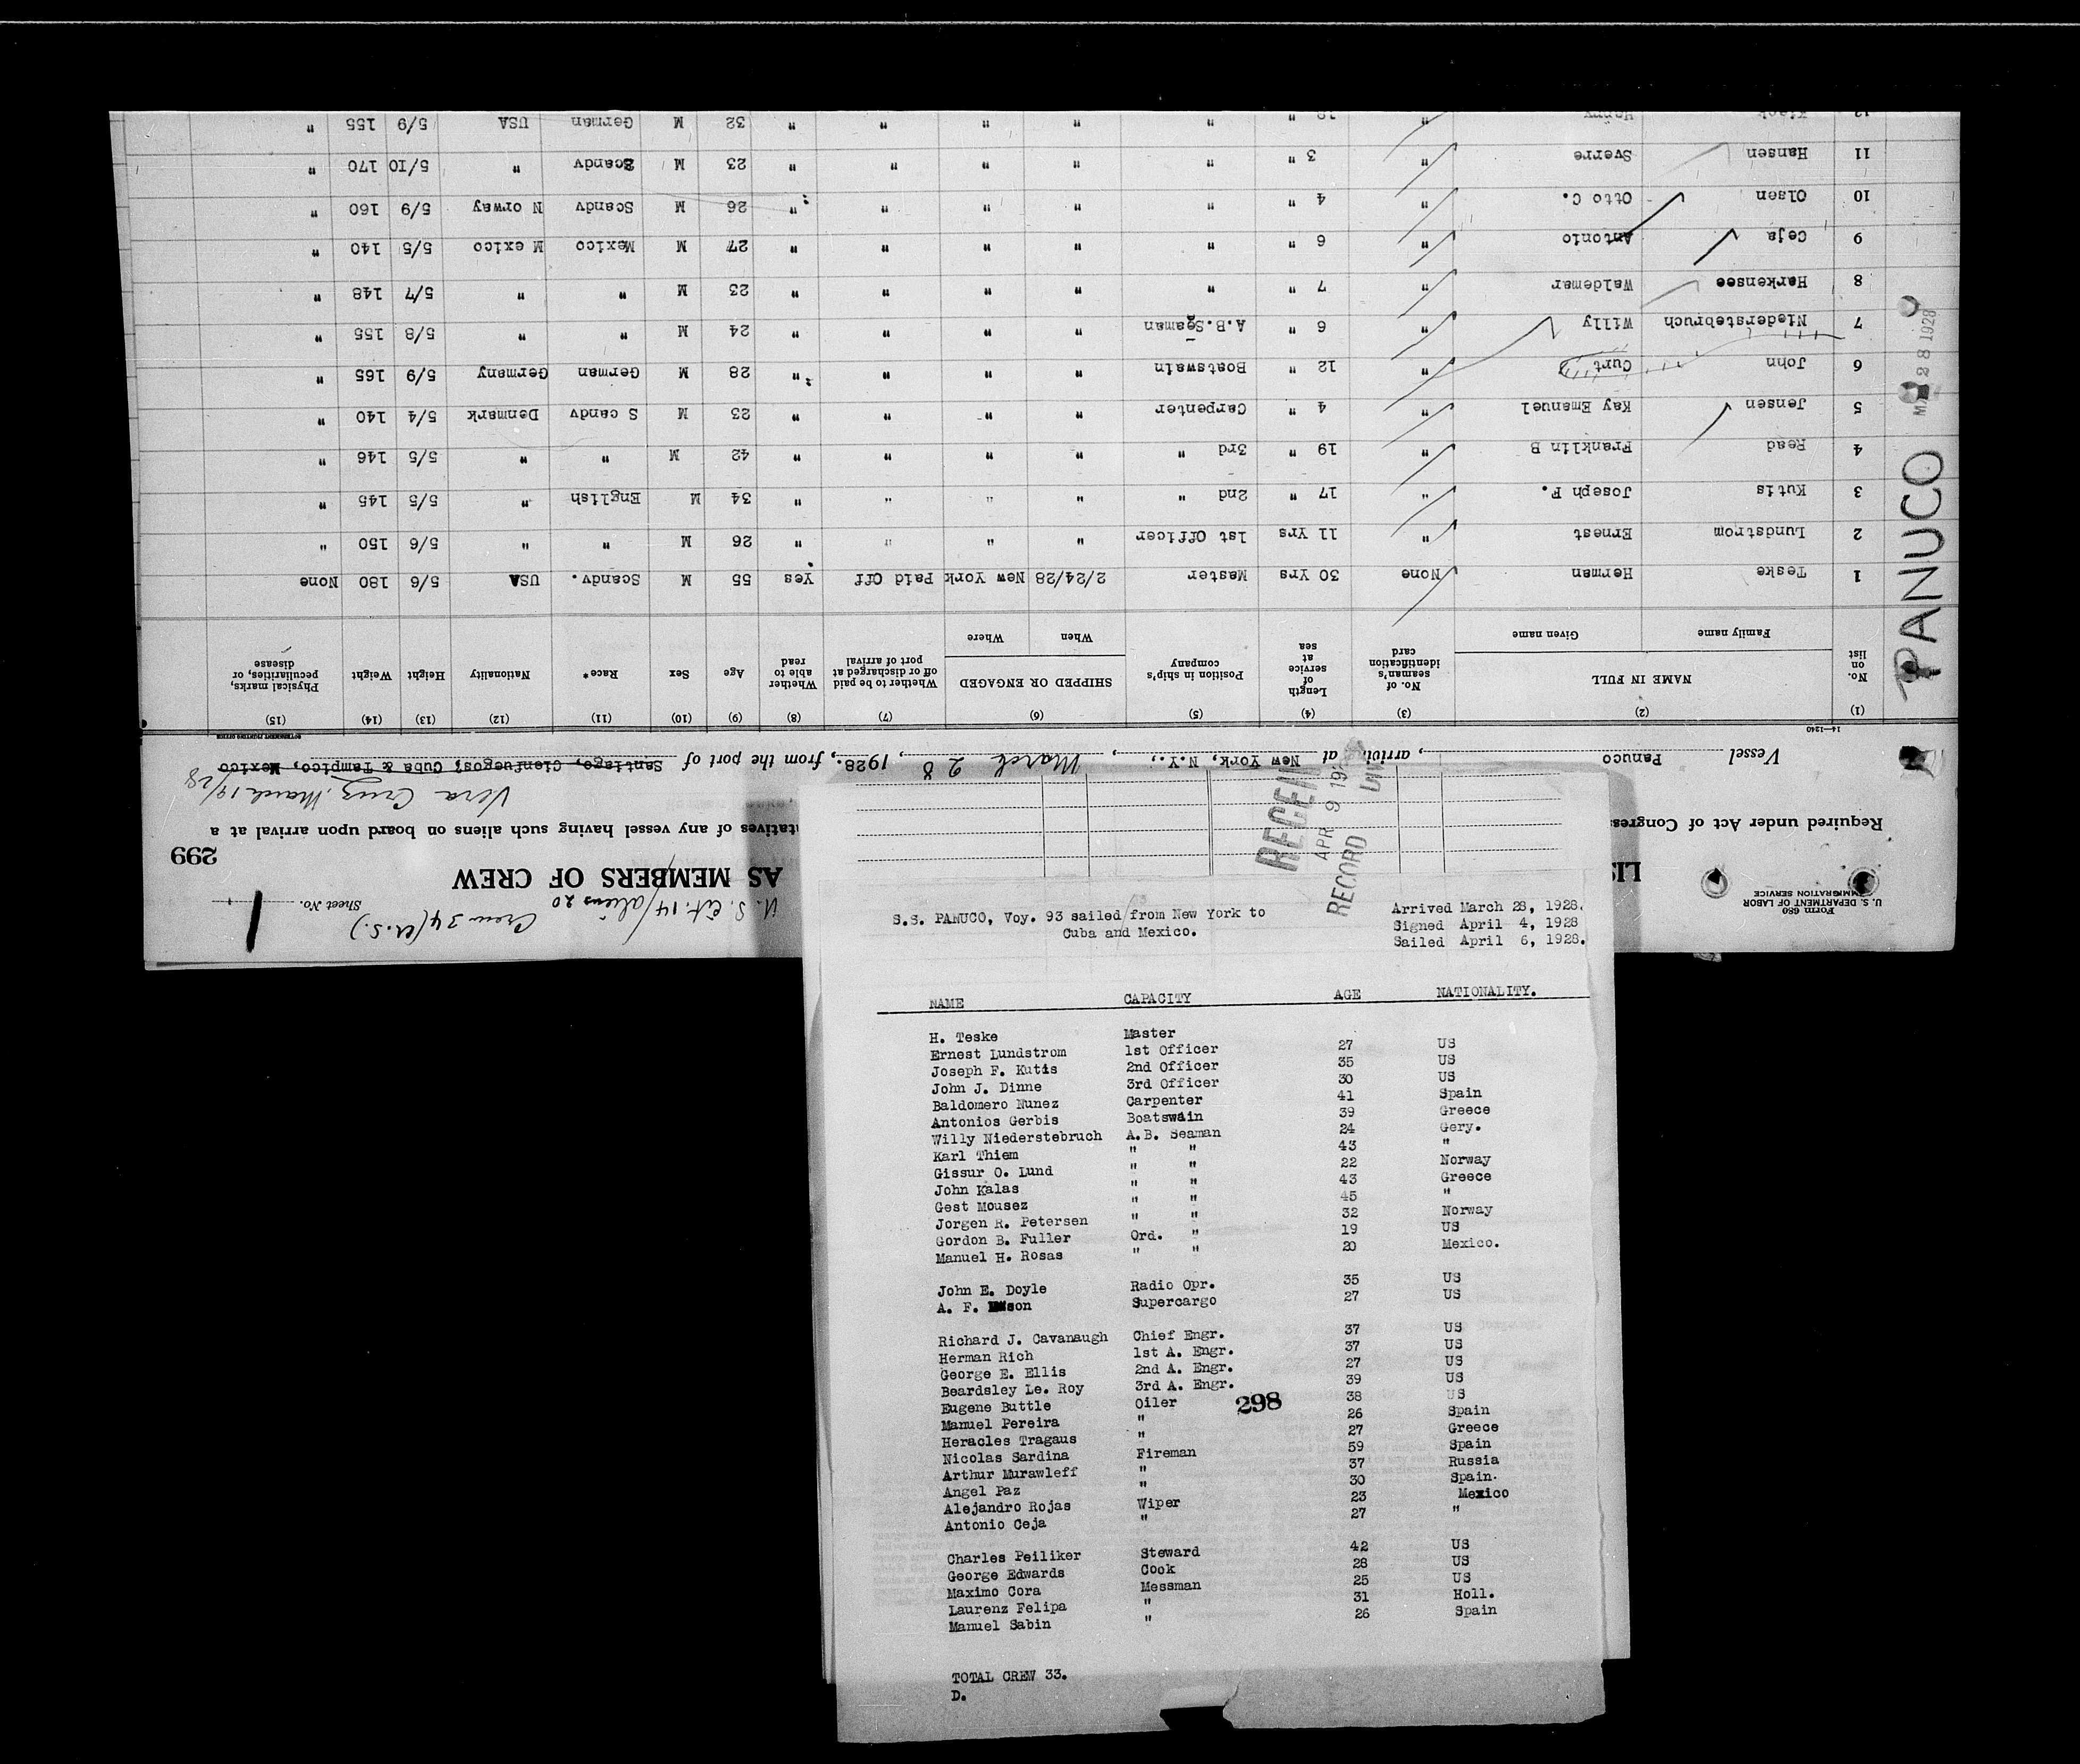 Form 680
U. S. DEPARTMENT OF LABOR
IMMIGRATION SERVICE
U. S. Cit. 14/aliens 20
Crew 34 (U.S.)
Sheet No. 1
AS MEMBERS OF CREW
299
Required under Act of Congress
of any vessel having such aliens on board upon arrival at a
Vera Cruz March 19/28
Vessel Panuco, arriving at New York, N.Y., March 28, 1928, from the port of Santiago, Cienfuegos; Cuba & Tampico, Mexico
14—1240
(1) (2) (3) (4) (5) (6) (7) (8) (9) (10) (11) (12) (13) (14) (15)
No. on list NAME IN FULL Family name Given name No. of seaman's identification card Length of service at sea Position in ship's company SHIPPED OR ENGAGED When Where Whether to be paid off or discharged at port of arrival Whether able to read Age Sex Race* Nationality Height Weight Physical marks, peculiarities, or disease
1 Teske Herman None 30 Yrs Master 2/24/28 New York Paid Off Yes 55 M Scandv. USA 5/6 180 None
2 Lundstrom Ernest " 11 Yrs 1st Officer " " " " 26 M " " 5/6 150 "
3 Kutis Joseph F. " 17 " 2nd " " " " " 34 M English " 5/5 145 "
4 Read Franklin B " 19 " 3rd " " " " " 42 M " " 5/5 146 "
5 Jensen Kay Emanuel " 4 " Carpenter " " " " 23 M S candv Denmark 5/4 140 "
6 John Curt " 12 " Boatswain " " " " 28 M German Germany 5/9 165 "
7 Niederstebruch Willy " 6 " A.B.Seaman " " " " 24 M " " 5/8 155 "
8 Harkensee Waldemar " 7 " " " " " " 23 M " " 5/7 148 "
9 Ceja Antonio " 6 " " " " " " 27 M Mexico M exico 5/5 140 "
10 Olsen Otto C. " 4 " " " " " " 26 M Scandv N orway 5/9 160 "
11 Hansen Sverre " 3 " " " " " " 23 M Scandv " 5/10 170 "
12 Henny " " " " " " " 32 M German USA 5/9 155 "
PANUCO
28 1928
RECEIVED
APR 9 19
RECORD DIV
S.S. PANUCO, Voy. 93 sailed from New York to
Cuba and Mexico.
Arrived March 28, 1928.
Signed April 4, 1928
Sailed April 6, 1928.
NAME CAPACITY AGE NATIONALITY.
H. Teske Master
Ernest Lundstrom 1st Officer 27 US
Joseph F. Kutis 2nd Officer 35 US
John J. Dinne 3rd Officer 30 US
Baldomero Nunez Carpenter 41 Spain
Antonios Gerbis Boatswain 39 Greece
Willy Niederstebruch A.B. Seaman 24 Gery.
Karl Thiem " " 43 "
Gissur O. Lund " " 22 Norway
John Kalas " " 43 Greece
Gest Mousez " " 45 "
Jorgen R. Petersen " " 32 Norway
Gordon B. Fuller Ord. " 19 US
Manuel H. Rosas " " 20 Mexico.
John E. Doyle Radio Opr. 35 US
A. F. Supercargo 27 US
Richard J. Cavanaugh Chief Engr. 37 US
Herman Rich 1st A. Engr. 37 US
George E. Ellis 2nd A. Engr. 27 US
Beardsley Le. Roy 3rd A. Engr. 39 US
Eugene Buttle Oiler 38 US
298
Manuel Pereira " 26 Spain
Heracles Tragaus " 27 Greece
Nicolas Sardina Fireman 59 Spain
Arthur Murawleff " 37 Russia
Angel Paz " 30 Spain.
Alejandro Rojas Wiper 23 Mexico
Antonio Ceja " 27 "
Charles Peiliker Steward 42 US
George Edwards Cook 28 US
Maximo Cora Messman 25 US
Laurenz Felipa " 31 Holl.
Manuel Sabin " 26 Spain
TOTAL CREW 33.
D.